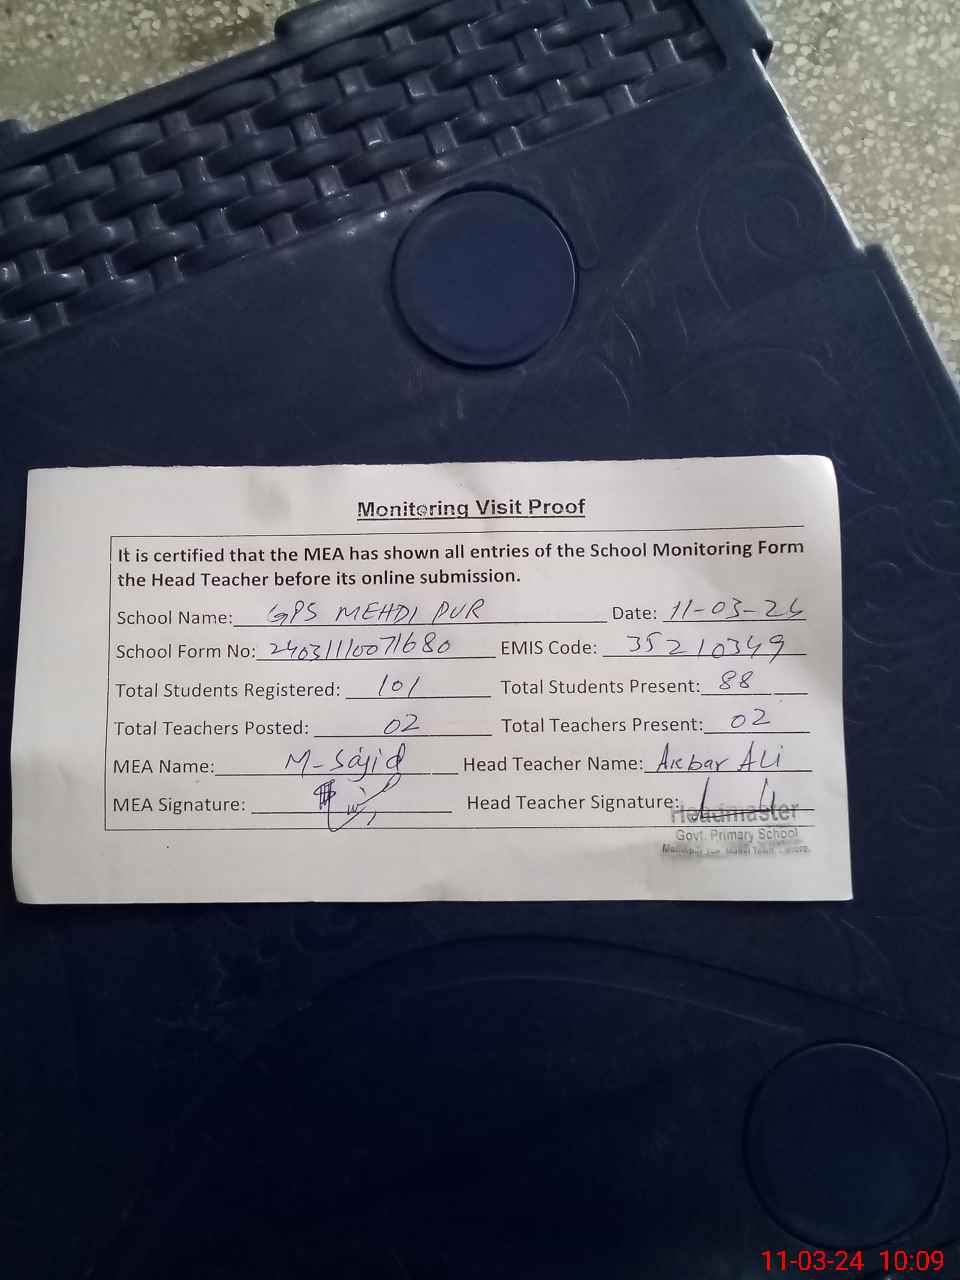 Monitoring Visit Proof
It is certified that the MEA has shown all entries of the School Monitoring Form
the Head Teacher before its online submission.
School Name: GPS MEHDI PUR Date: 11-03-24
School Form No: 24031110071680 EMIS Code: 35210349
Total Students Registered: 101 Total Students Present: 88
Total Teachers Posted: 02 Total Teachers Present: 02
MEA Name: M-Sajid Head Teacher Name: Akbar Ali
MEA Signature: Head Teacher Signature:
Headmaster
Govt. Primary School
11-03-24 10:09